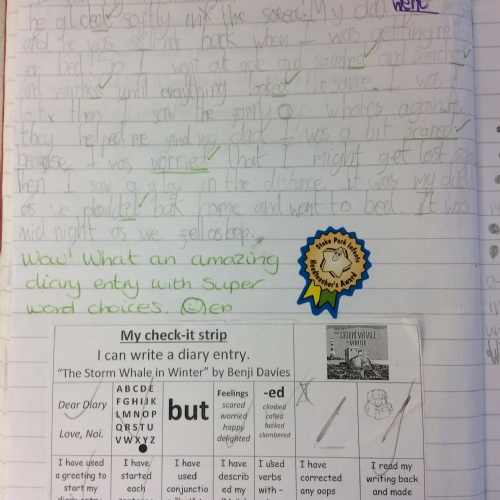 he glided softly into the sea. My dad went
and he was still not back when I was getting in
bed! So I went out side and searched and searched
and searched until everything looked the same. I was
lost. then I saw the family of whales again
they helped me find my dad. I was a bit scared
because I was worried that I might get lost
then I saw a in the distance. it was my dad
as we plodded back home and went to bed. It was
mid night as we fell asleep.
Wow! What an amazing
diary entry with super
word choices. EP
Stoke Park Infants
Headteacher's Award
My check-it strip
I can write a diary entry.
"The Storm Whale in Winter" by Benji Davies
THE STORM WHALE
IN WINTER
Dear Diary
Love, Noi.
A B C D E
F G H I J K
L M N O P
Q R S T U
V W X Y Z
but
Feelings
scared
worried
happy
delighted
-ed
climbed
called
looked
clambered
I have used
a greeting to
start my
I have
started
each
I have
used
conjunctio
I have
describ
ed my
I used
verbs
with –
I have
corrected
any oops
I read my
writing back
and made